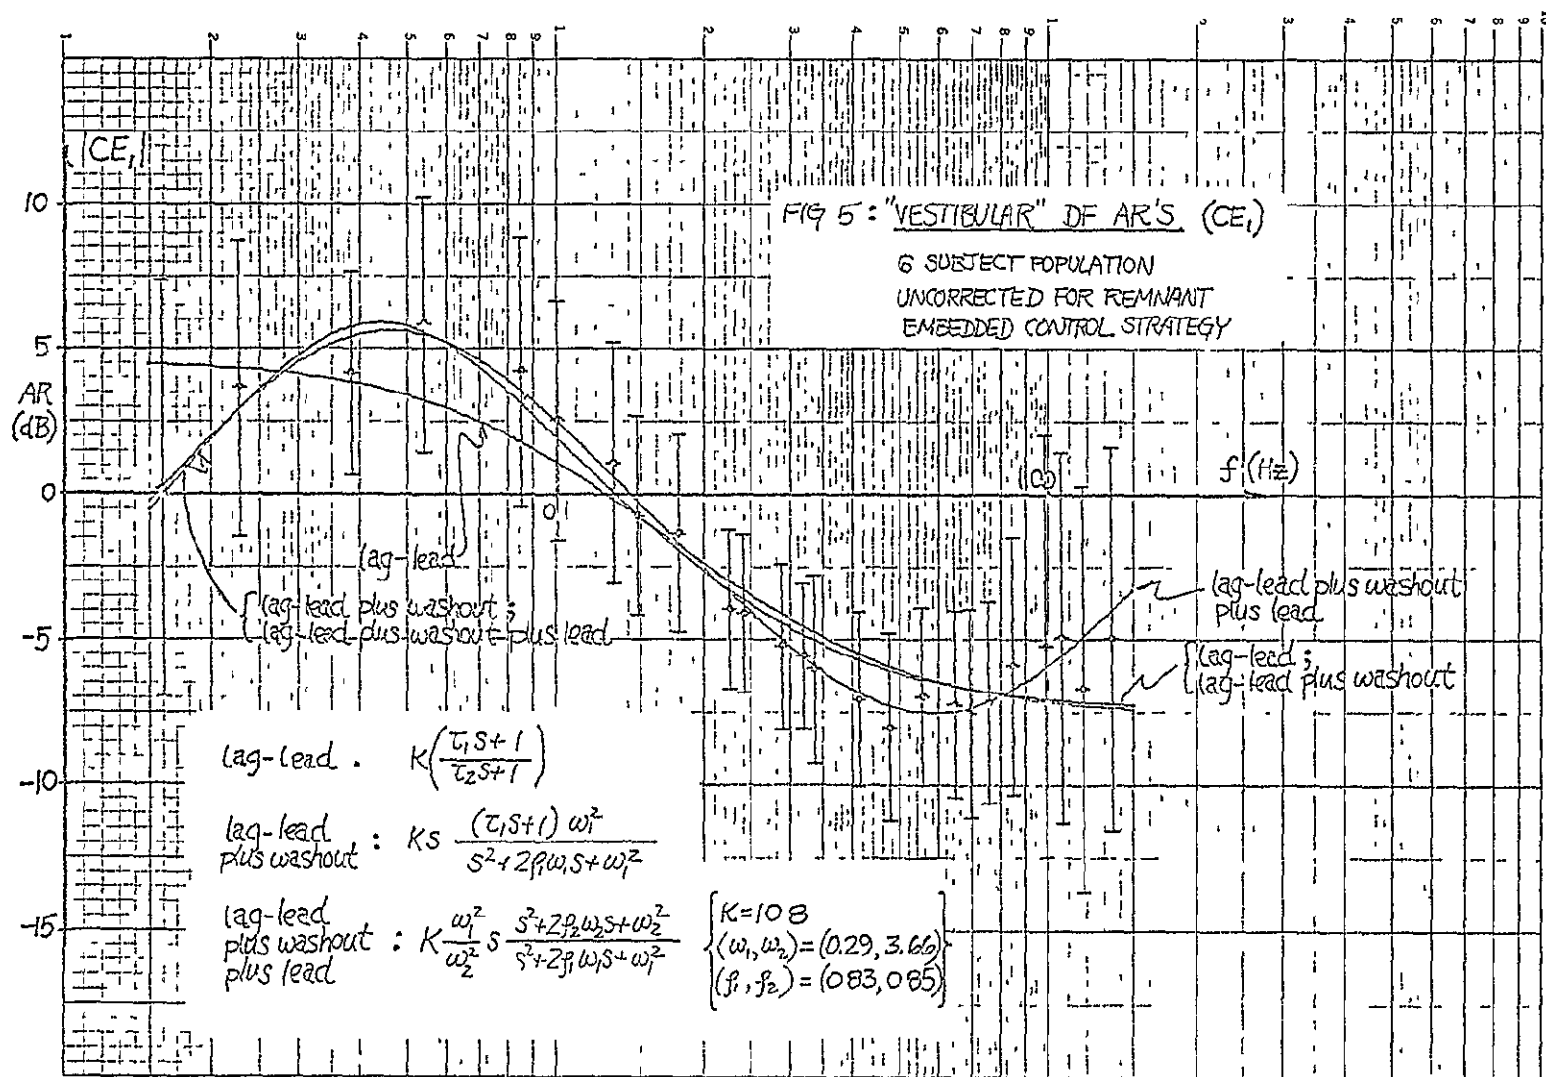 1 2 3 4 5 6 7 8 9 1 2 3 4 5 6 7 8 9 1 2 3 4 5 6 7 8 9
|CE₁|
10
5
AR
(dB)
0
-5
-10
-15
FIG 5: "VESTIBULAR" DF AR'S (CE₁)
6 SUBJECT POPULATION
UNCORRECTED FOR REMNANT
EMBEDDED CONTROL STRATEGY
f (Hz)
lag-lead
{lag-lead plus washout;
lag-lead plus washout plus lead
lag-lead plus washout
plus lead
{lag-lead;
lag-lead plus washout
lag-lead . K(τ₁s+1 / τ₂s+1)
lag-lead
plus washout : Ks (τ₁s+1) ω₁² / s²+2ρ₁ω₁s+ω₁²
lag-lead
plus washout : K ω₁²/ω₂² s s²+2ρ₂ω₂s+ω₂² / s²+2ρ₁ω₁s+ω₁²
plus lead
{K=108
(ω₁,ω₂)=(0.29, 3.66)
(ρ₁,ρ₂)=(083, 085)}